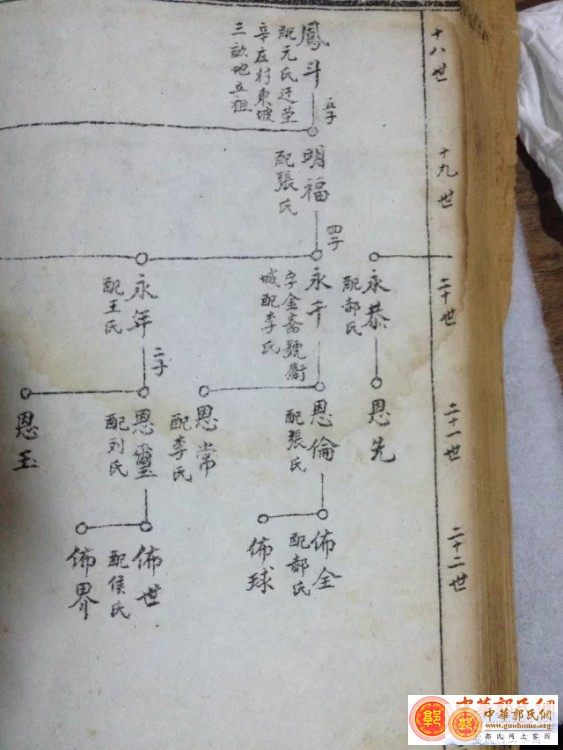 十八世
十九世
二十世
二十一世
二十二世
鳳斗
配元氏迁茔
辛庄村東坡
三畝地立祖
五子
明福
配張氏
四子
永恭
配郜氏
永千
字金斋號衛
城配李氏
永年
配王氏
二子
恩先
恩倫
配張氏
恩常
配李氏
恩靈
配刘氏
恩玉
佈全
配郜氏
佈球
佈世
配侯氏
佈界
郭
中華郭氏網
www.guohome.org
郭氏网上家园